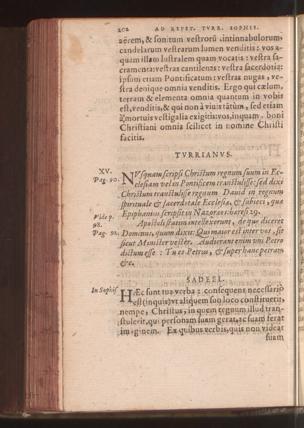 202 AD REPET. TVRR. SOPHIS.
aërem, & sonitum vestrorū tintinnabulorum,
candelarum vestrarum lumen venditis: vos a-
quam illam lustralem quam vocatis: vestra sa-
cramenta: vestras cantilenas: vestra sacerdotia:
ipsum etiam Pontificatum: vestras nugas, ve-
stra denique omnia venditis. Ergo qui cælum,
terram & elementa omnia quantum in vobis
est, venditis, & qui non à viuis tātùm, sed etiam
à mortuis vestigalia exigitis: vos, inquam, boni
Christiani omnia scilicet in nomine Christi
facitis.
TVRRIANVS.
XV.
Pag. 90.
NVsquam scripsi Christum regnum suum in Ec-
clesiam vel in Pontificem transtulisse: sed dixi
Christum transtulisse regnum Dauid in regnum
spirituale & sacerdotale Ecclesiæ, & subieci, quæ
Epiphanius scripsit in Nazoræis hæresi 29.
Vide p.
98.
Apostoli statim intellexerunt, de quo diceret
Pag. 91.
Dominus, quum dixit: Qui maior est inter vos, sit
sicut Minister vester. Audierant enim vni Petro
dictum esse: Tu es Petrus, & super hanc petram
&c.
SADEEL.
In Sophis.
HÆc sunt tua verba: consequens necessariò
est (inquis) vt aliquem suo loco constituerit,
nempe, Christus, in quem regnum illud tran-
stulerit, qui personam suam gerat, ac suam ferat
imaginem. Ex quibus verbis, quis non videat
suam